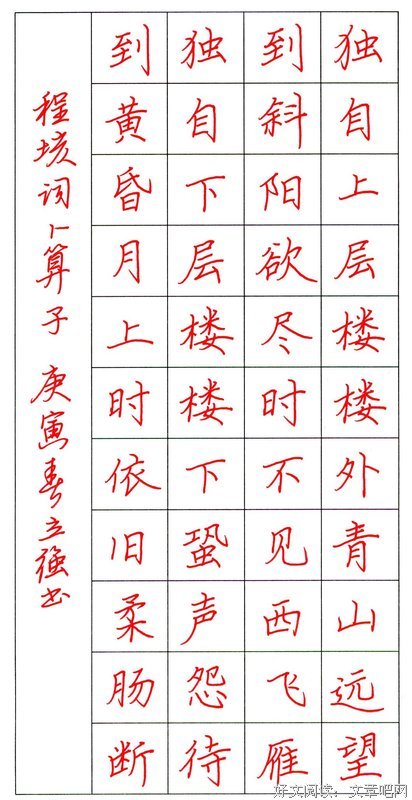 独自上层楼楼外青山远望
到斜阳欲尽时不见西飞雁
独自下层楼楼下蛩声怨待
到黄昏月上时依旧柔肠断
程垓词卜算子 庚寅春立强书
好文阅读:文章吧网